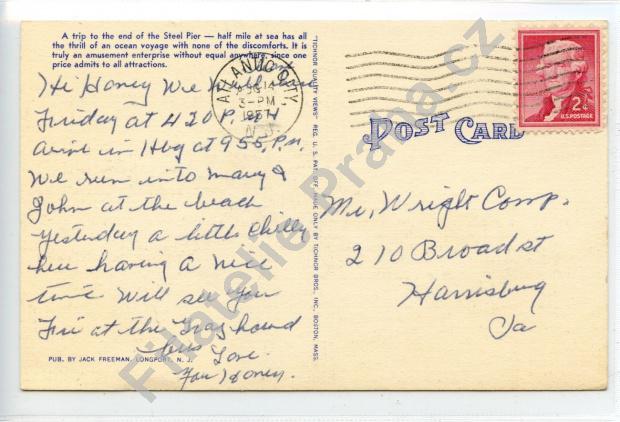 A trip to the end of the Steel Pier — half mile at sea has all
the thrill of an ocean voyage with none of the discomforts. It is
truly an amusement enterprise without equal anywhere, since one
price admits to all attractions.
Hi Honey We will
Friday at 420 P.M
arive in Hbg at 955, P.M.
We run into Mary &
John at the beach
yesterday a little chilly
here having a nice
time Will see you
Fri at the Grayhound
bus Love.
Honey.
PUB. BY JACK FREEMAN, LONGPORT, N. J.
"TICHNOR QUALITY VIEWS" REG. U. S. PAT. OFF. MADE ONLY BY TICHNOR BROS., INC., BOSTON, MASS.
ATLANTIC CITY,
14
PM
1957
N.J.
2¢
U.S. POSTAGE
POST CARD
Mr, Wright Comp.
210 Broad st
Harrisburg
Pa
Filatelie Praha.cz